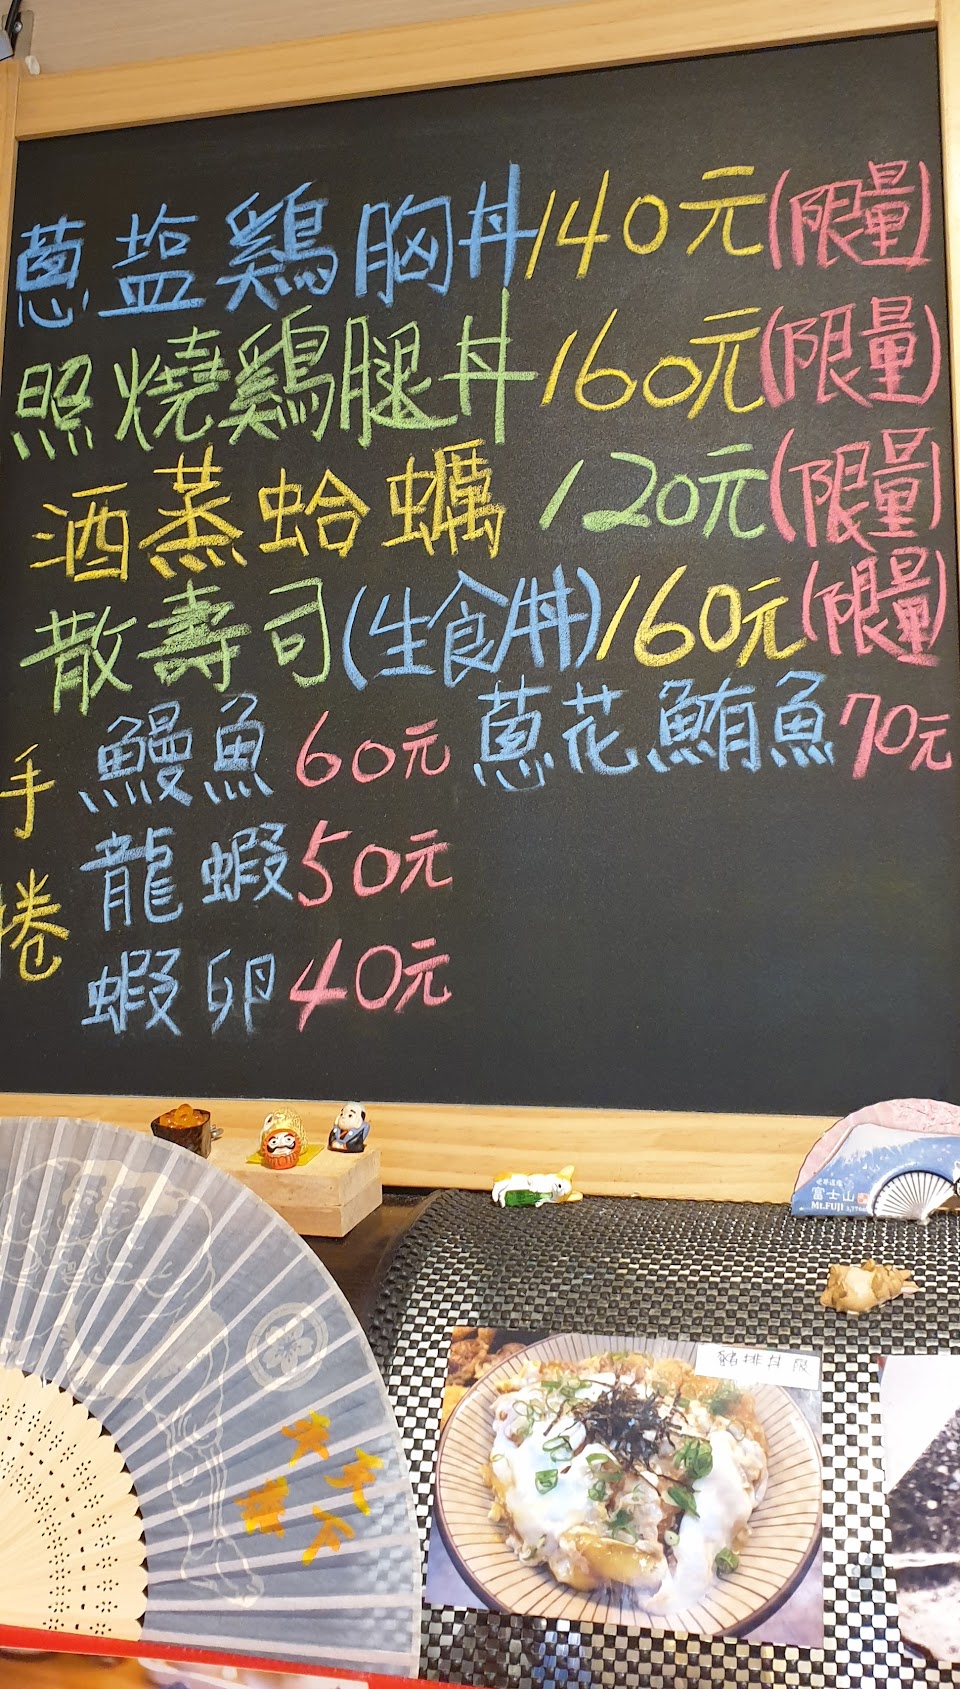 蔥塩鷄胸丼140元(限量)
照燒鷄腿丼160元(限量)
酒蒸蛤蠣120元(限量)
散壽司(生食丼)160元(限量)
手捲
鰻魚60元 蔥花鮪魚70元
龍蝦50元
蝦卵40元
富士山
Mt.FUJI
豬排丼